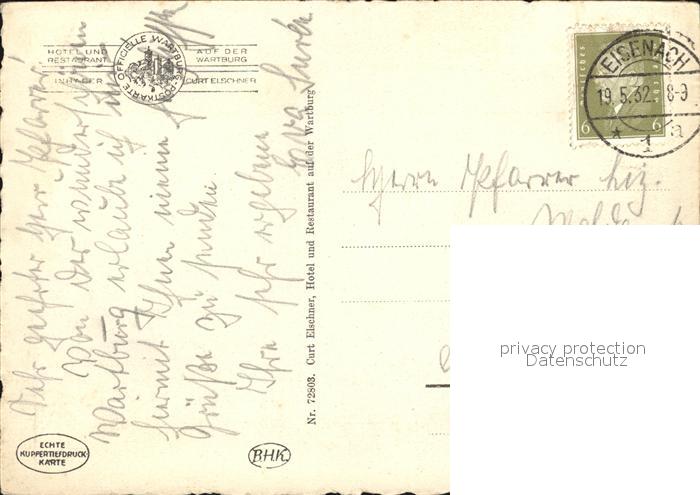 HOTEL UND
RESTAURANT
INHABER
OFFICIELLE WARTBURG-POSTKARTE
AUF DER
WARTBURG
CURT ELSCHNER
Sehr geehrter Herr Pfarrer!
Von der wunderschönen
Wartburg erlaube ich
hiermit Ihnen meine
Grüße zu senden.
Ihre sehr ergebene
Nr. 72803. Curt Elschner, Hotel und Restaurant auf der Wartburg
EISENACH
19.5.32. 8-9
* 1 a
6 6
Herrn Pfarrer Liz.
privacy protection
Datenschutz
ECHTE
KUPFERTIEFDRUCK-
KARTE
B.H.K.